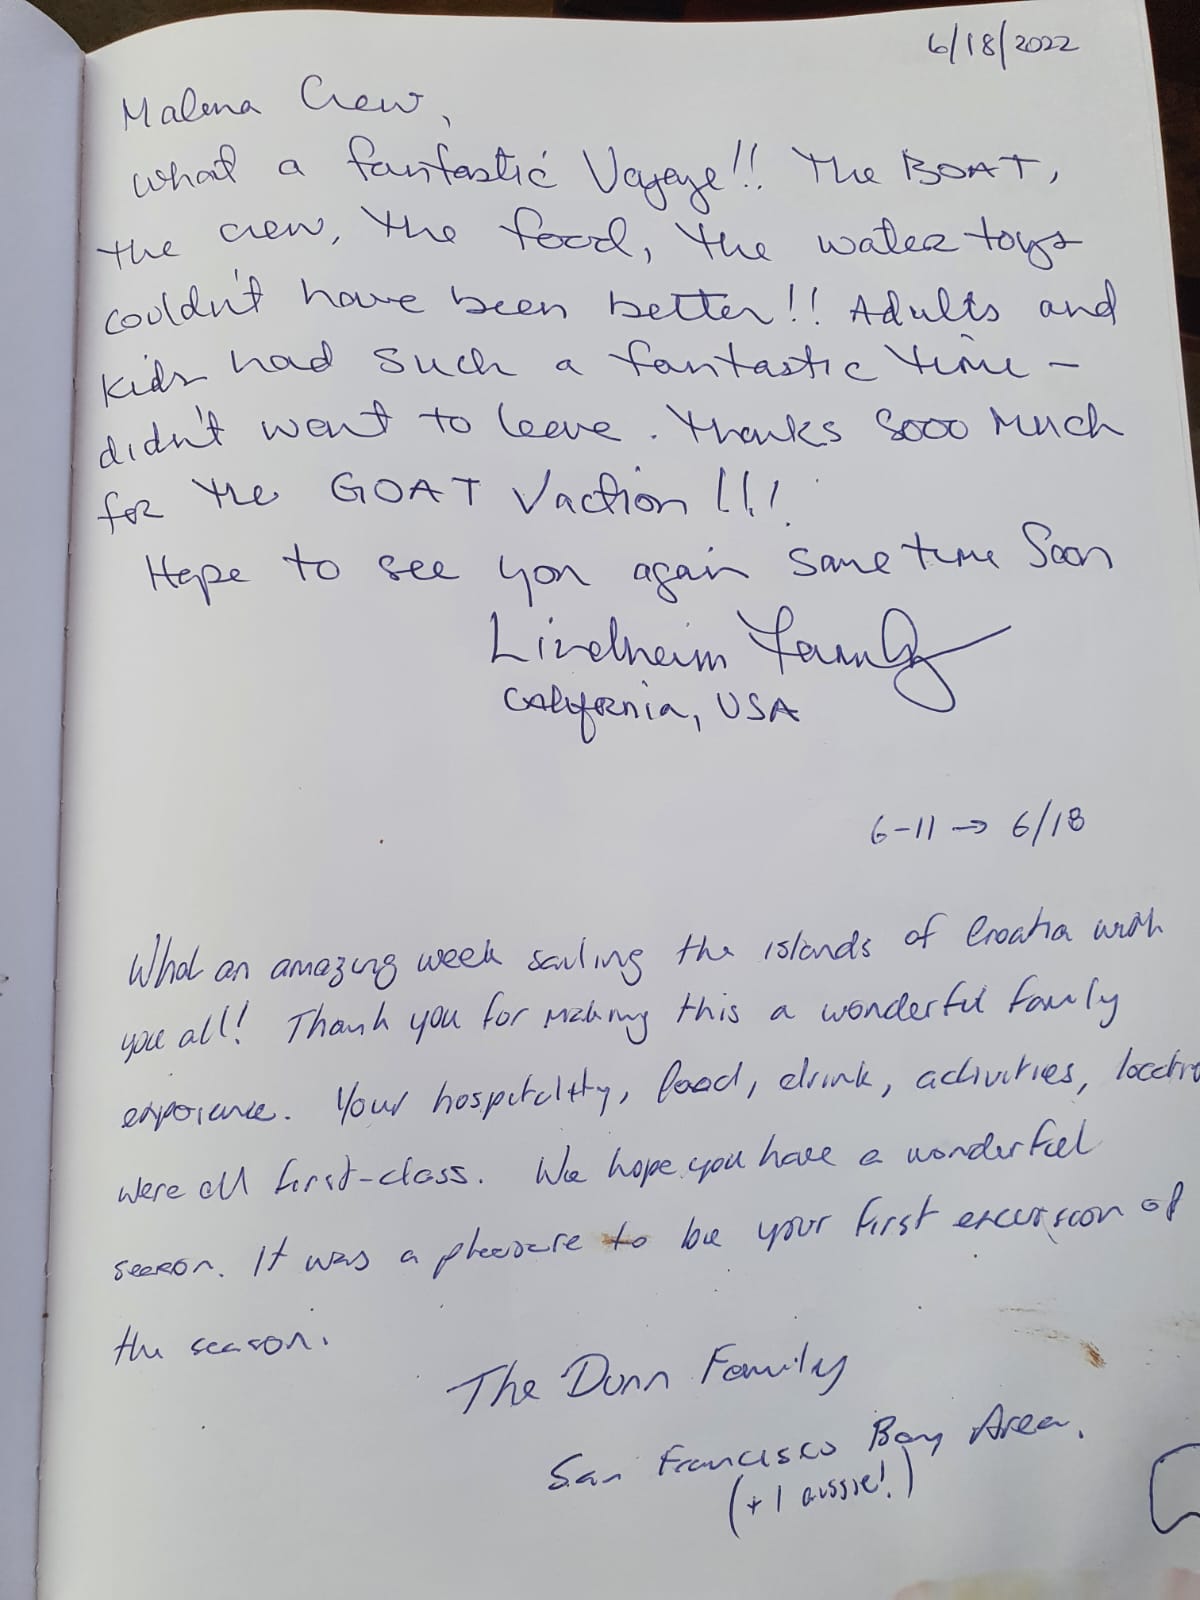 6/18/2022
Malena Crew,
What a fantastic Voyage!! The BOAT,
the crew, the food, the water toys
couldn't have been better!! Adults and
kids had such a fantastic time -
didn't want to leave. Thanks Sooo Much
for the GOAT Vaction!!!
Hope to see you again some time Soon
Lindheim Family
California, USA
6-11 → 6/18
What an amazing week sailing the islands of Croatia with
you all! Thank you for making this a wonderful family
experience. Your hospitality, food, drink, activities, locatio
were all first-class. We hope you have a wonderful
season. It was a pleasure to be your first excursion of
the season.
The Dunn Family
San Francisco Bay Area.
(+1 aussie!)